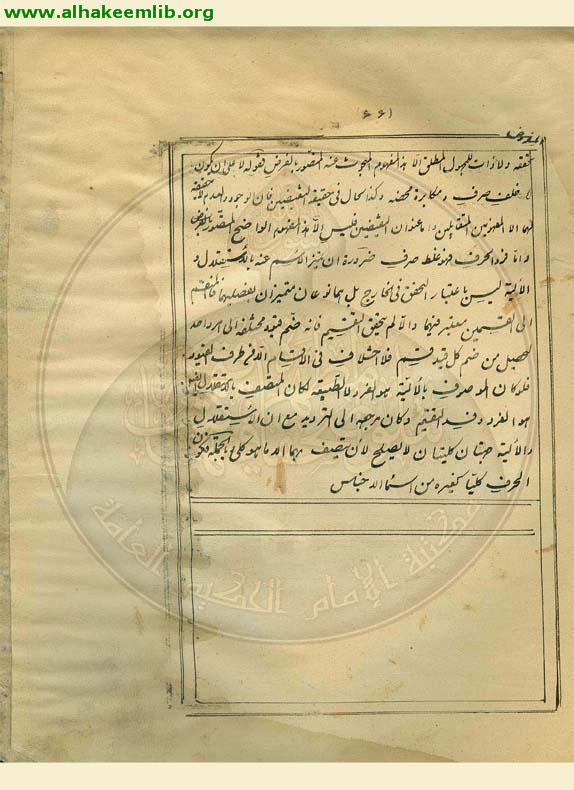 www.alhakeemlib.org
(٤٤)
لتحققه ولا ذات للمجهول المطلق الا هذا المفهوم المبحوث عنه المتصور بالفرض فقوله لا على ان يكون
خلف صرف ومكابرة محضة وكذا الحال في حقيقة النقيضين فان الوجود والعدم لا حقيقة
لهما الا المفهومين المتقابلين واما عنوان النقيضين فليس الا هذا المفهوم الواضح المتصور بالفرض
واما فرد الحرف فهو غلط صرف ضرورة ان تميز الاسم عنه بالاستقلال و
الالية ليس باعتبار التحقق في الخارج بل هما نوعان متميزان بفصليهما فالمنقسم
الى القسمين معتبر فيهما والا لم يتحقق التقسيم فانه ضم قيود مختلفة الى امر واحد
ليحصل من ضم كل قيد قسم فلا اختلاف في الاقسام الا من طرف القيود
فلو كان الموصوف بالالية هو الفرد لا الطبيعة لكان المتصف بالاستقلال ايضا
هو الفرد وفسد التقسيم وكان مرجعه الى الترديد مع ان الاستقلال
والالية جهتان كليتان لا يصلح لأن يتصف بهما الا ما هو كلي وبالجملة فكون
الحرف كليا كغيره من اسماء الاجناس
مكتبة الإمام الحكيم العامة